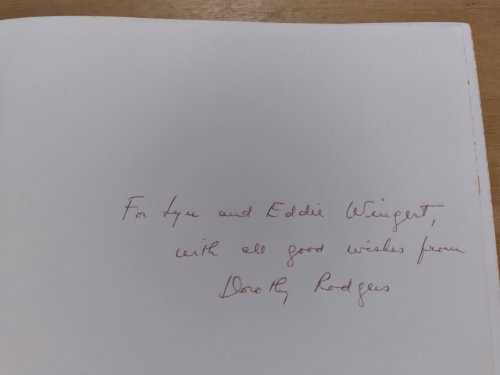 For Lyn and Eddie Wingert,
with all good wishes from
Dorothy Rodgers